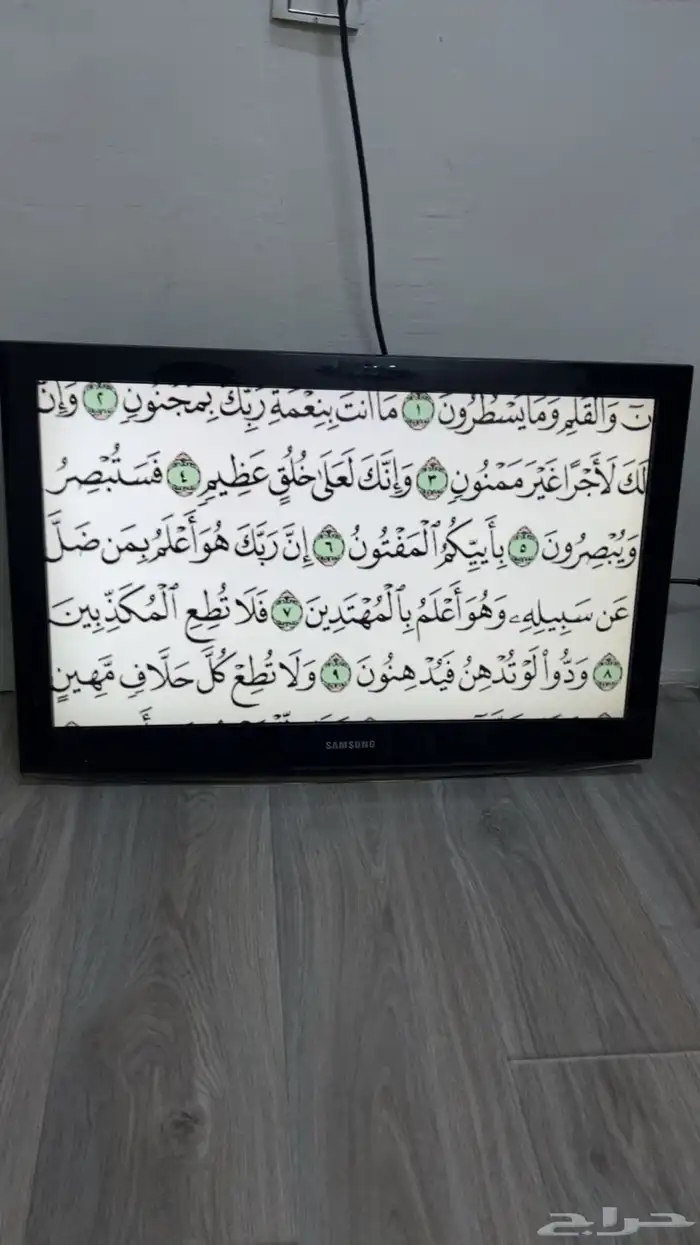 نٓ وَالْقَلَمِ وَمَا يَسْطُرُونَ ١ مَا أَنتَ بِنِعْمَةِ رَبِّكَ بِمَجْنُونٍ ٢ وَإِنَّ
لَكَ لَأَجْرًا غَيْرَ مَمْنُونٍ ٣ وَإِنَّكَ لَعَلَىٰ خُلُقٍ عَظِيمٍ ٤ فَسَتُبْصِرُ
وَيُبْصِرُونَ ٥ بِأَييِّكُمُ ٱلْمَفْتُونُ ٦ إِنَّ رَبَّكَ هُوَ أَعْلَمُ بِمَن ضَلَّ
عَن سَبِيلِهِۦ وَهُوَ أَعْلَمُ بِٱلْمُهْتَدِينَ ٧ فَلَا تُطِعِ ٱلْمُكَذِّبِينَ
٨ وَدُّوا۟ لَوْ تُدْهِنُ فَيُدْهِنُونَ ٩ وَلَا تُطِعْ كُلَّ حَلَّافٍ مَّهِينٍ
SAMSUNG
حراج